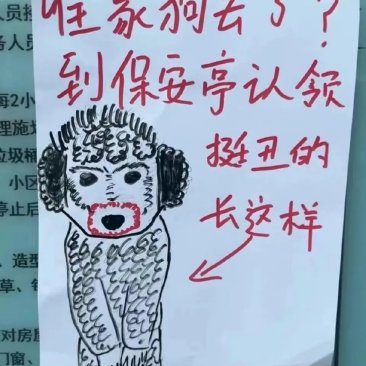 谁家狗丢了?
到保安亭认领
挺丑的
长这样
务人员
每2小
理施
垃圾桶
小区
停止后
、造型
草、
对房屋
门窗、